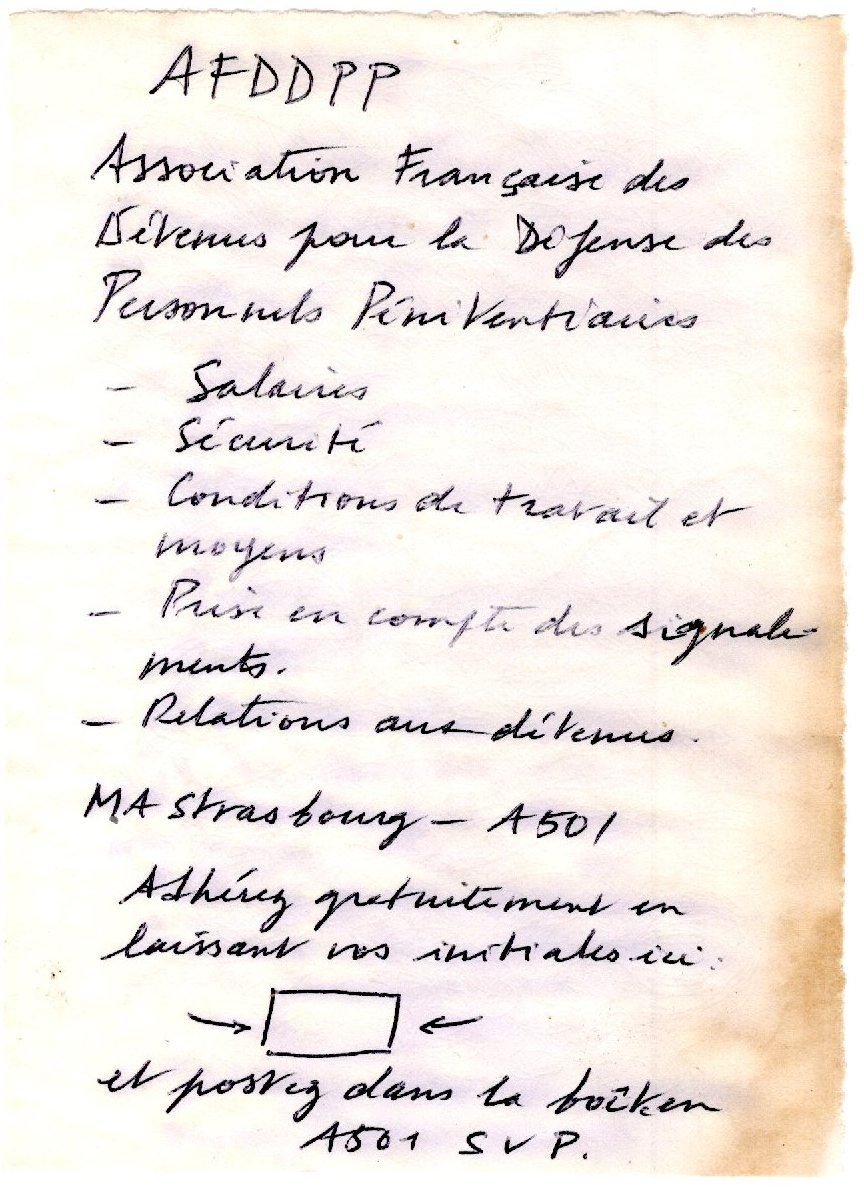 AFDDPP
Association Française des
Détenus pour la Défense des
Personnels Pénitentiaires
- Salaires
- Sécurité
- Conditions de travail et
moyens
- Prise en compte des signale-
ments.
- Relations aux détenus.
MA Strasbourg - A501
Adhérez gratuitement en
laissant vos initiales ici :
et postez dans la boîte en
A501 SVP.